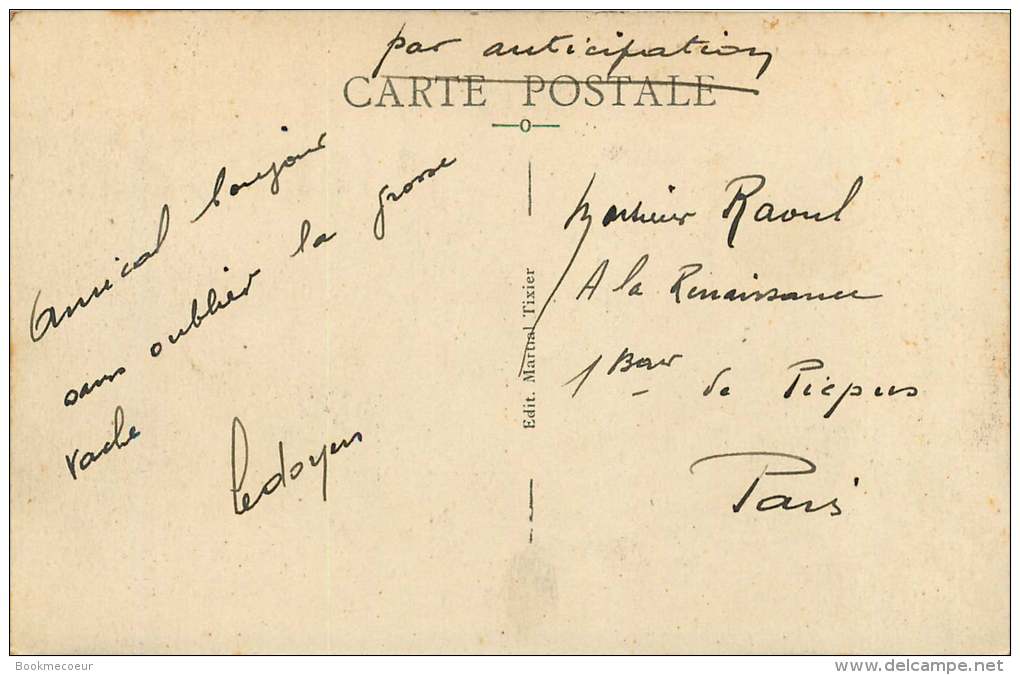 par anticipation
CARTE POSTALE
Amical bonjour
sans oublier la grosse
vache
Ledoyen
Edit. Martial Tixier
Monsieur Raoul
A la Renaissance
1 Bover de Picpus
Paris
Bookmecoeur
www.delcampe.net